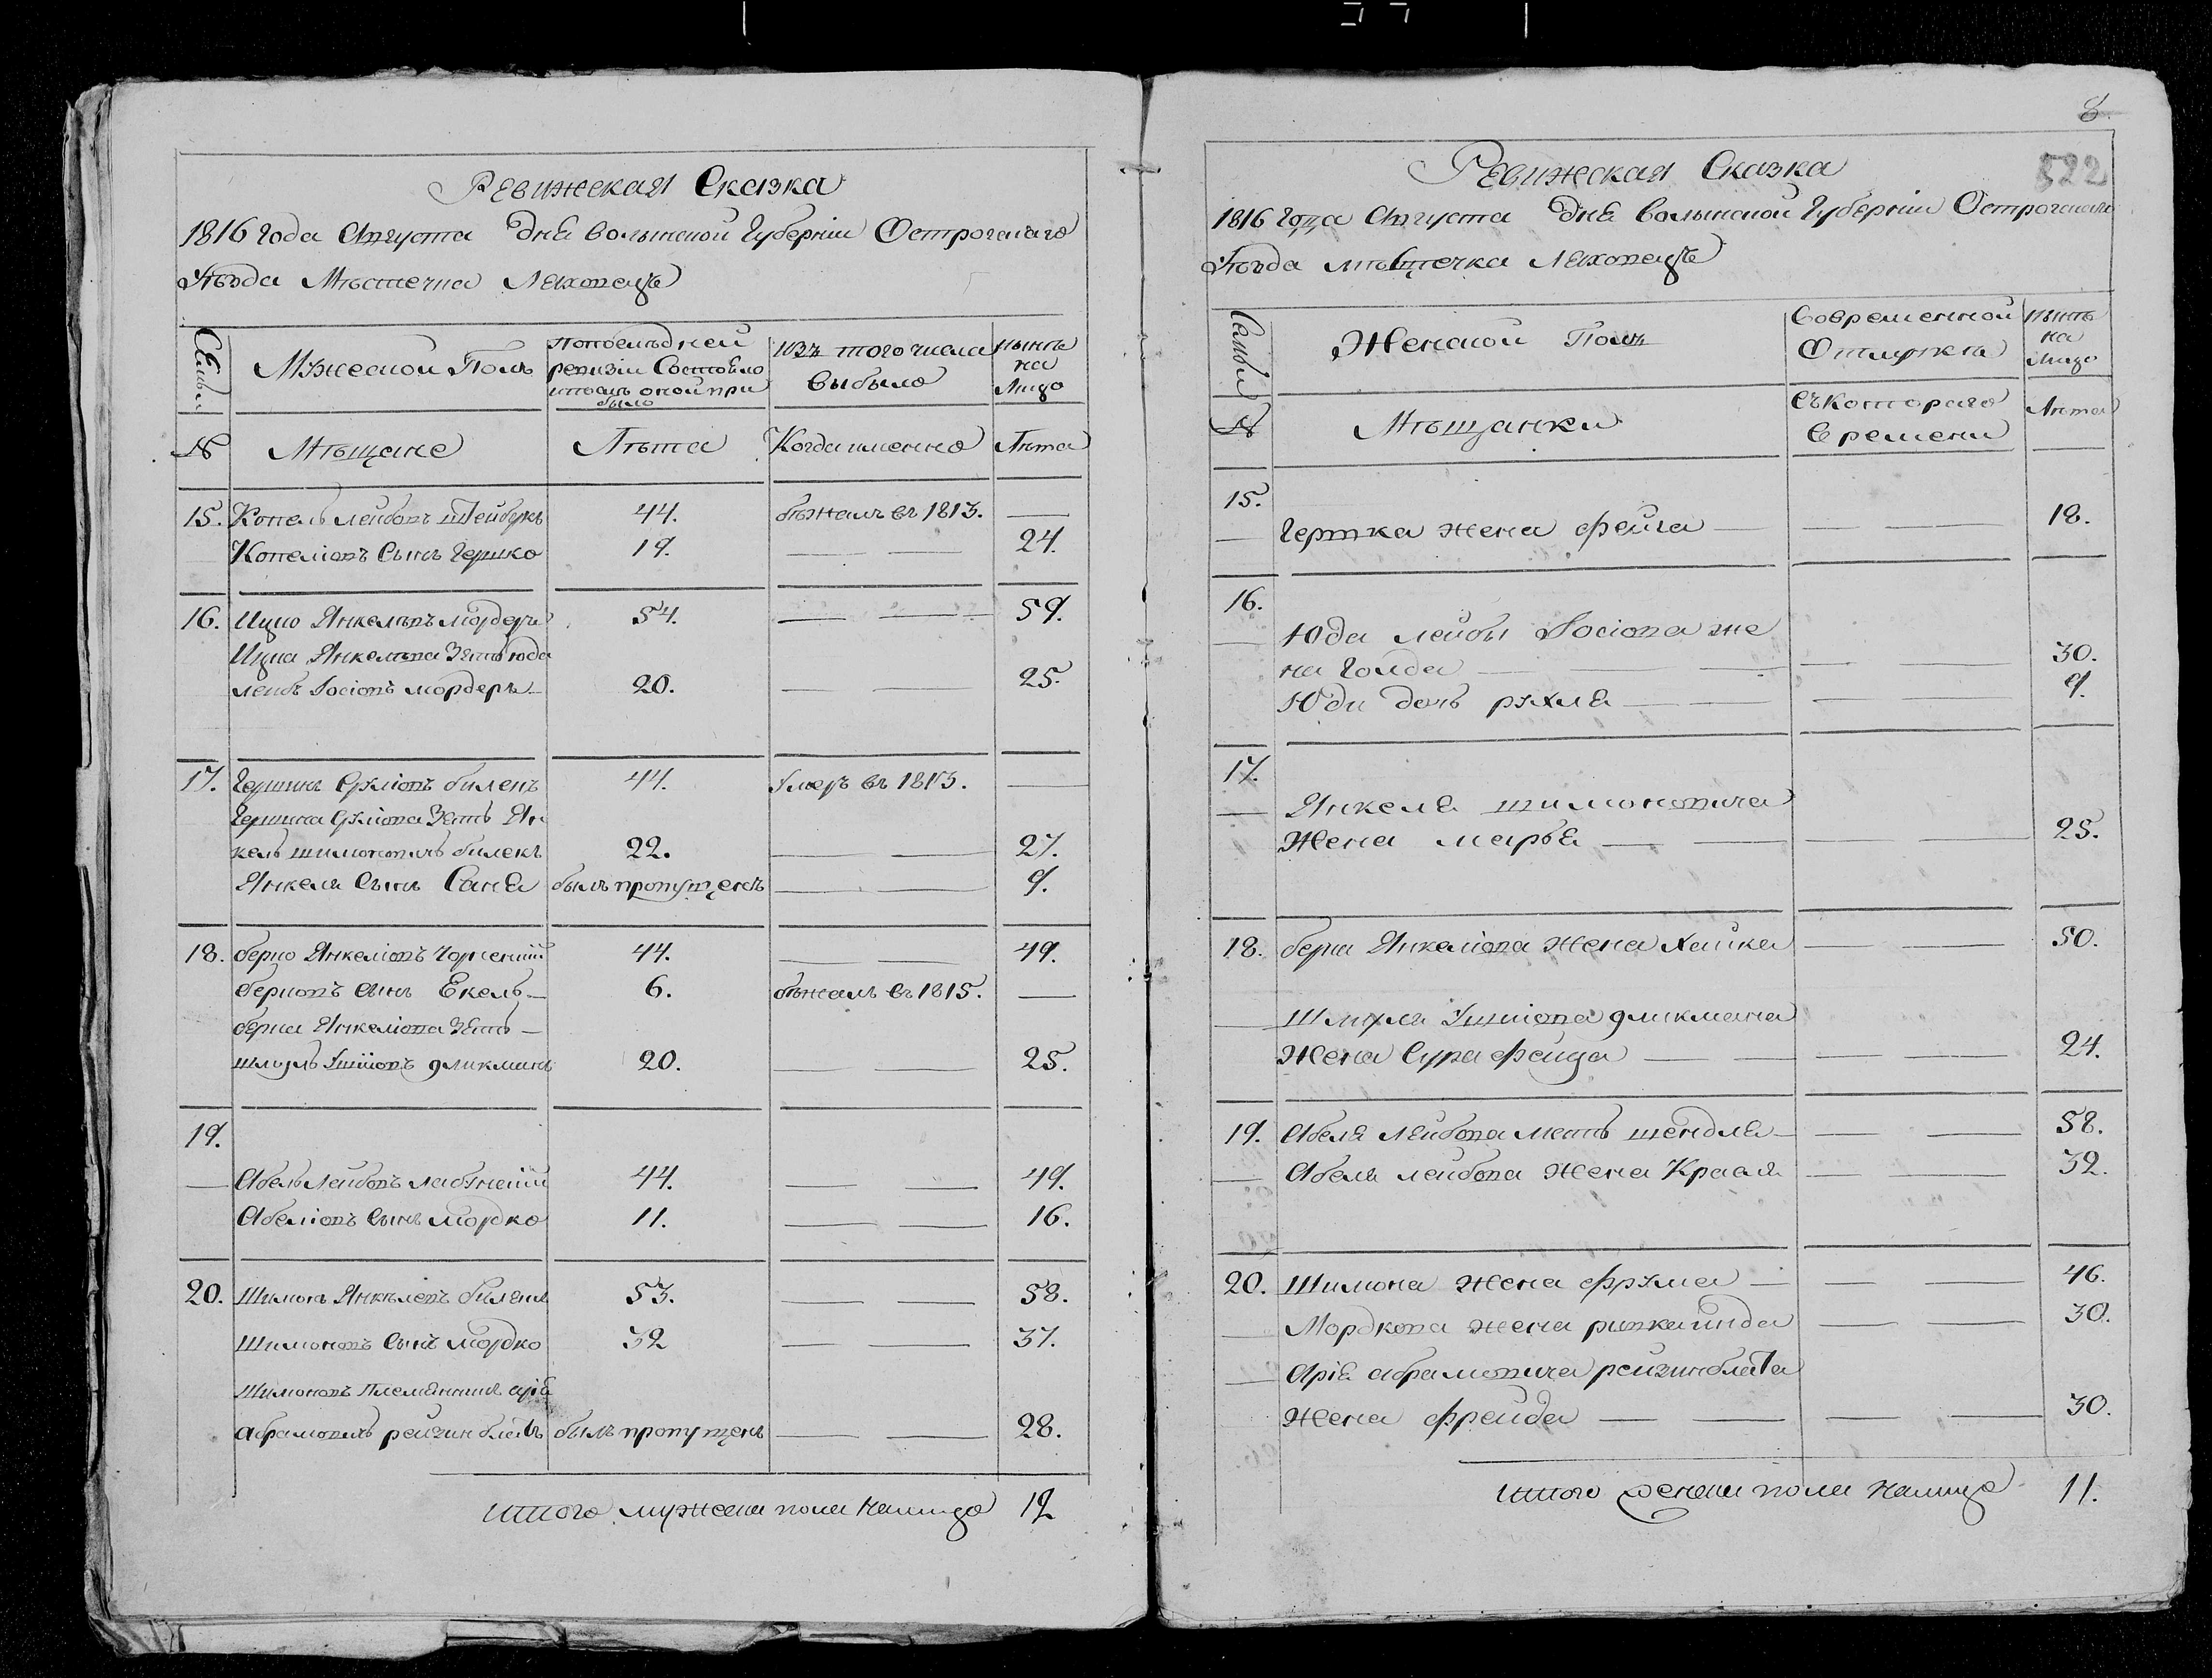 Ревижская Сказка
1816 Года Августа Дня Волынской Губернiи Острогскаго
Уѣзда Мѣстечка Ляховецъ
Семьи
Мужеской Полъ
Попослѣдней
ревизiи Состояло
ипослѣ оной при
было
Изъ того числа
Выбыло
Нынѣ
на
Лицо
№
Мѣщане
Лѣта
Когда именно
Лѣта
15. Копель лейбовъ 44. бѣжалъ въ 1813. —
Копелiовъ Сынъ Гершко 19. — — 24.
16. Ицко Янкелевъ мордеръ 54. — — 59.
Ицка Янкелева Зять юда
лейбъ Iосiовъ мордеръ 20. — — 25.
17. Гершко Сруліовъ биленъ 44. Умеръ въ 1813. —
Гершка Срулiова Зять Ян
кель шимоновичъ биленъ 22. — — 27.
Янкеля Сынъ Саня былъ пропущенъ — — 9.
18. берко Янкелiовъ 44. — — 49.
берковъ сынъ Екель — 6. бѣжалъ въ 1815. —
берка Янкелiова Зять —
шмуль 20. — — 25.
19.
— Абель Лейбовъ 44. — — 49.
Абелiовъ Сынъ мордко 11. — — 16.
20. Шимонъ Янкелевъ биленъ 53. — — 58.
Шимоновъ Сынъ мордко 32 — — 37.
Шимоновъ Племянникъ арiя
абрамовичъ рейзинблатъ былъ пропущенъ — — 28.
итого мужеска пола налицо 12
8
522
Ревижская Сказка
1816 Года Августа Дня Волынской Губернiи Острогскаго
Уѣзда мѣстечка Ляховецъ
Семьи
Женской Полъ
Вовременной
Отлучкѣ
Нынѣ
на
Лицо
№
Мѣщанки
Съкотораго
Времени
Лѣта
15.
— Гершка жена фейга — — — 18.
16.
— Юда лейбы Iосiова же
на Голда — — — 30.
Юды дочь рухля — — — 9.
17.
— Янкеля шимоновича
Жена марья — — — 25.
18. берка Янкелiова жена хайка — — 50.
— Шмуля
Жена Сура фейга — — — 24.
19. Абеля Лейбова мать шендля — — — 58.
— Абеля лейбова жена Крейля — — 32.
20. Шимона жена фрума — — — 46.
— Мордкова жена ривка гинда — — 30.
— Арiя абрамовича рейзинблата
Жена фрейда — — — 30.
итого женска пола налицо 11.